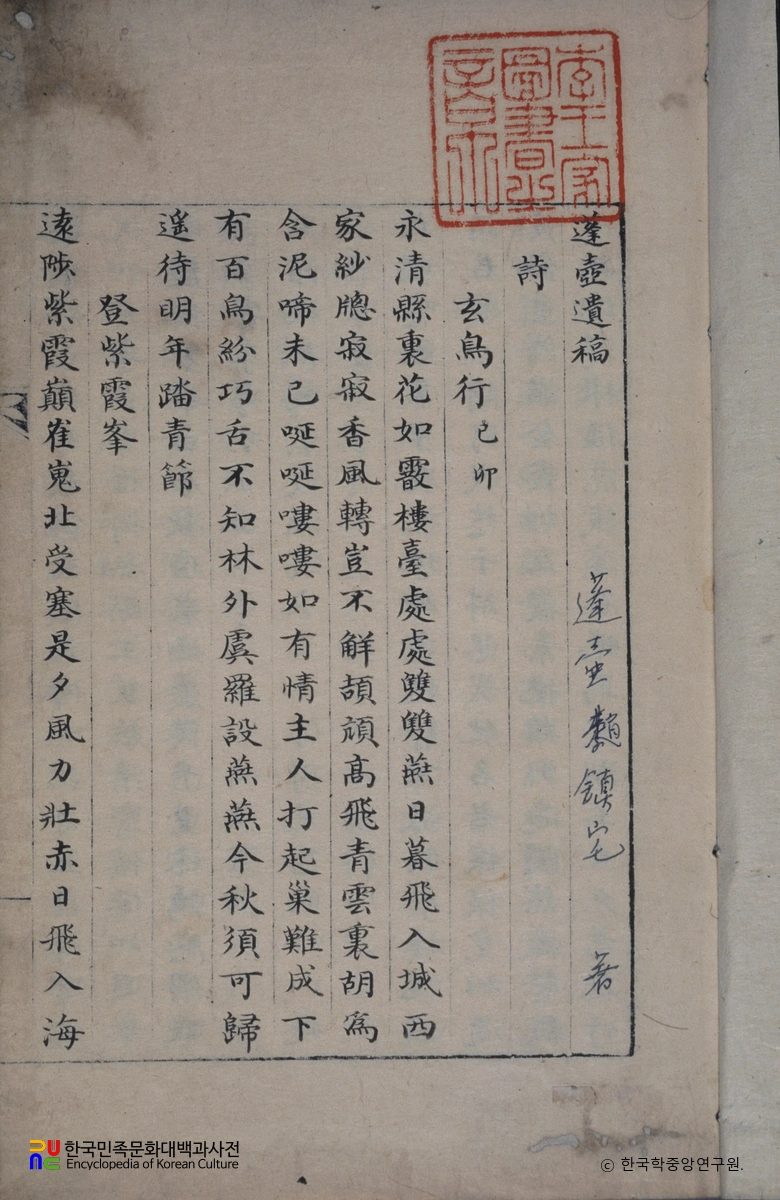 李王家
圖書
之章
蓬壺遺稿
蓬壺 鎮宅 著
詩
玄鳥行 己卯
永清縣裏花如霰樓臺處處雙雙燕日暮飛入城西
家紗牕寂寂香風轉豈不解頡頏高飛青雲裏胡爲
含泥啼未已咺咺嘍嘍如有情主人打起巢難成下
有百鳥紛巧舌不知林外虞羅設燕燕今秋須可歸
遥待明年踏青節
登紫霞峯
遠陟紫霞巔崔嵬北受塞是夕風力壯赤日飛入海
한국민족문화대백과사전
Encyclopedia of Korean Culture
ⓒ 한국학중앙연구원.